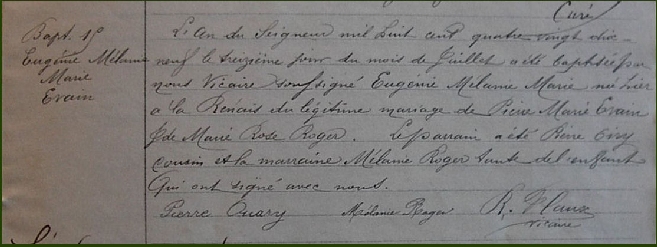 Curé
Bapt. 
Eugénie Mélanie
Marie
Evain
L'An du Seigneur mil huit cent quatre vingt dix
neuf le treizième jour du mois de Juillet a été baptisée par
nous Vicaire soussigné Eugénie Mélanie Marie née hier
à la Renais du légitime mariage de Pierre Marie Evain
& de Marie Rose Roger. Le parrain a été Pierre
cousin et la marraine Mélanie Roger tante de l'enfant
Qui ont signé avec nous.
Pierre Ouary Mélanie Roger R.
vicaire